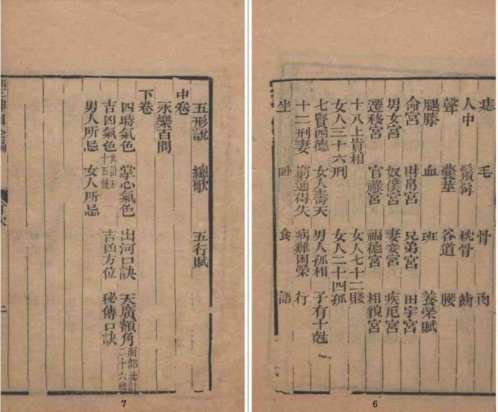 痣 毛 骨 肉
人中 枕骨 齒
聲 谷道 腰
腿膝 血 班 養榮賦
命宮 財帛宮 兄弟宮 田宅宮
男女宮 奴僕宮 妻妾宮 疾厄宮
遷移宮 官祿宮 福德宮 相貌宮
十八上貴相 女人七十二賤
女人三十六刑 女人二十四孤
七賢四德 女人壽夭 男人孤相 子有十尅
十二刑妻 窮通得失 病難困榮 行
坐 卧 食 語
6
五形說 總歌 五行賦
中卷
永樂百問
下卷
四時氣色 掌心氣色 出河口訣 天廣額角
吉凶氣色 吉凶方位 秘傳口訣
男人所忌 女人所忌
7